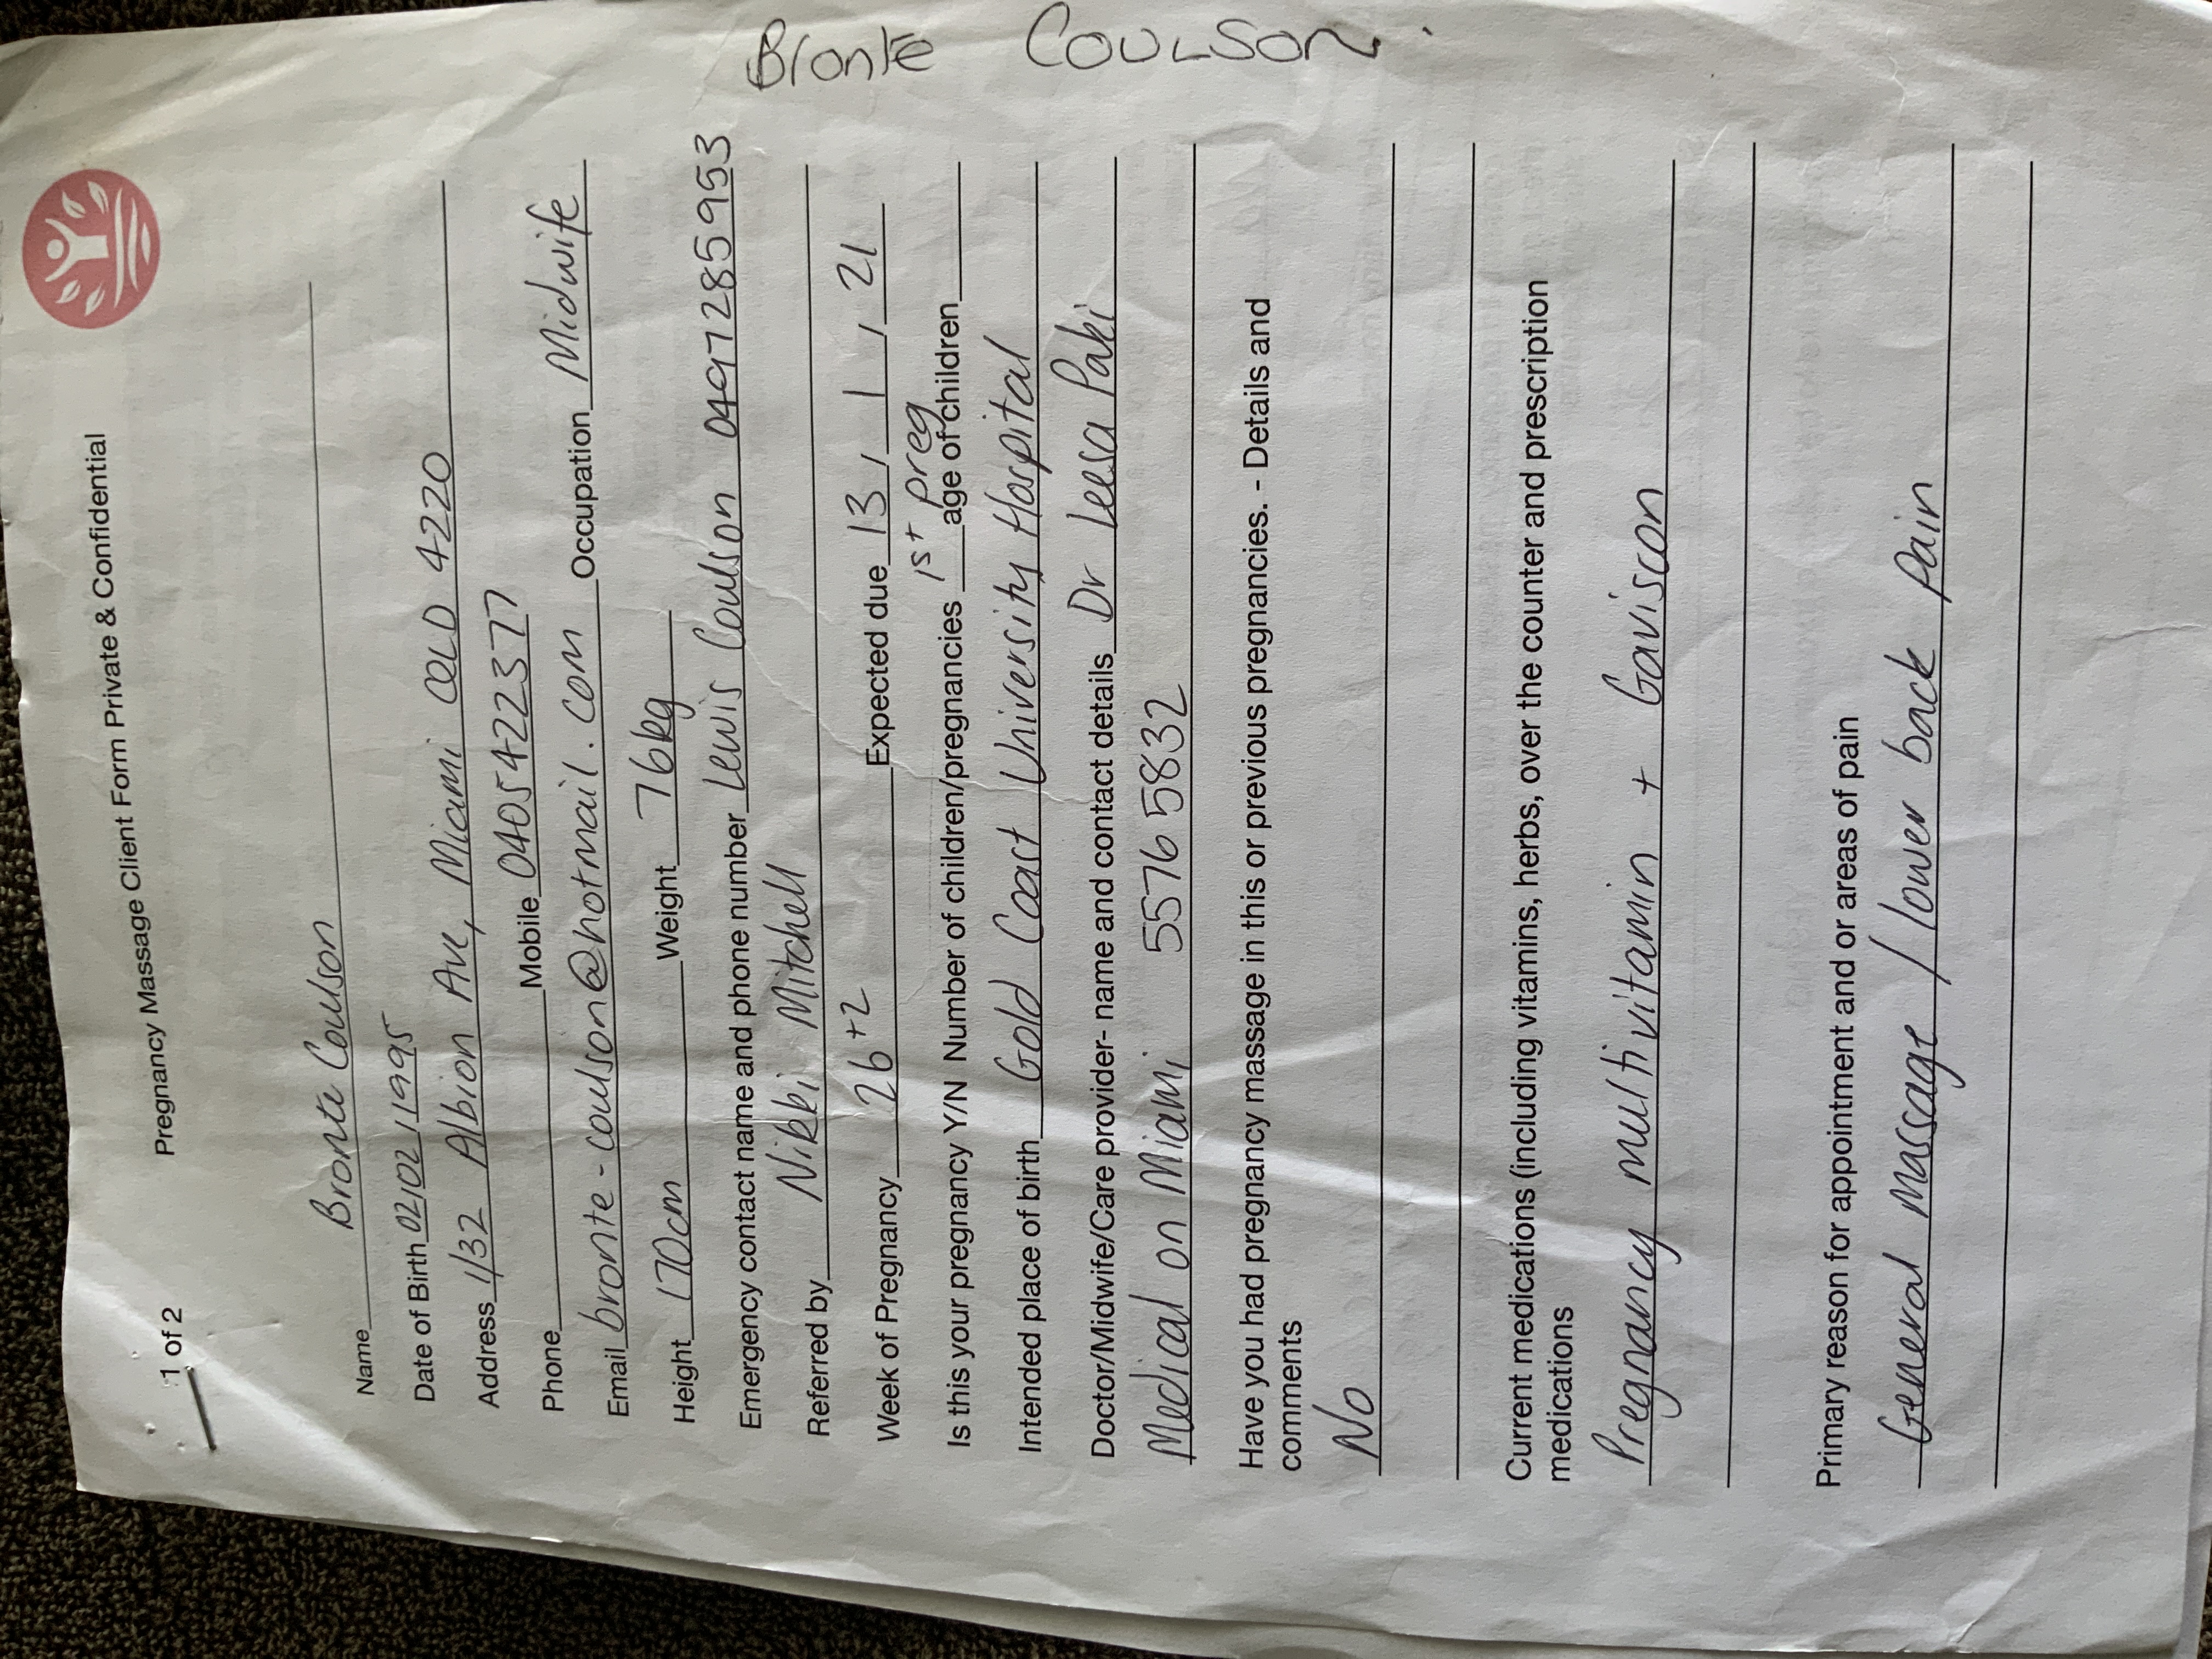 1 of 2 Pregnancy Massage Client Form Private & Confidential
Name Bronte Coulson
Date of Birth 02/02/1995
Address 1/32 Albion Ave, Miami QLD 4220
Phone Mobile 0405422377
Email bronte-coulson@hotmail.com Occupation Midwife
Height 170cm Weight 76kg
Emergency contact name and phone number Lewis Coulson 0497285953
Referred by Nikki Mitchell
Week of Pregnancy 26+2 Expected due 13 / 1 / 21
Is this your pregnancy Y/N Number of children/pregnancies 1st preg age of children
Intended place of birth Gold Coast University Hospital
Doctor/Midwife/Care provider- name and contact details Dr Leesa Paki
Medical on Miami 5576 5832
Have you had pregnancy massage in this or previous pregnancies. - Details and
comments
No
Current medications (including vitamins, herbs, over the counter and prescription
medications
Pregnancy multivitamin + Gaviscon
Primary reason for appointment and or areas of pain
General massage / lower back pain
Bronte COULSON.